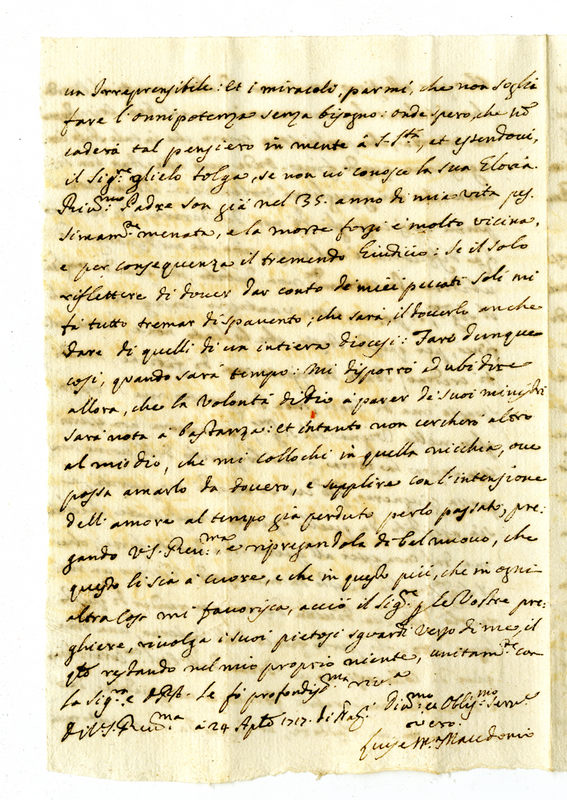 un Irreprensibile: Et i miracoli, parmi, che non soglia
fare l'onnipotenza senza bisogno: onde spero, che nō
caderà tal pensiero in mente à S. Stà, et essendoui,
il Sig.re glielo tolga, se non ui conosce la sua Gloria.
Reu.mo Padre son già nel 35. anno di mia vita pes,
simam.te menata, e la morte forsi è molto vicina,
e per consequenza il tremendo Giudicio: Se il solo
riflettere di douer dar conto de miei peccati soli mi
fà tutto tremar di spauento, che sarà, il douerlo anche
dare di quelli di un intiera diocesi: Farò dunque
così, quando sarà tempo: Mi disporrò ad ubidire
allora, che la Volontà di Dio à parer de suoi ministri
sarà nota à bastanza: et intanto non cercherò altro
al mio dio, che mi collochi in quella nicchia, oue
possa amarlo da douero, e supplire con l'intensione
dell'amore al tempo già perduto per lo passato, pre,
gando V.S. Reu.ma, e ripregandola di bel nuouo, che
questo li sia à cuore, e che in questo più, che in ogni
altra cosa mi fauorisca, acciò il Sig.re p le Vostre pre:
ghiere, riuolga i suoi pietosi sguardi verso di me, il
qto restando nel mio proprio niente, unitam.te con
la Sig.ra le fò profondiss.ma riu.a
di V.S. Reu.ma à 24 1717. Diu.mo et Oblig.mo Seru.e
vero
Luise M.a Macedonio